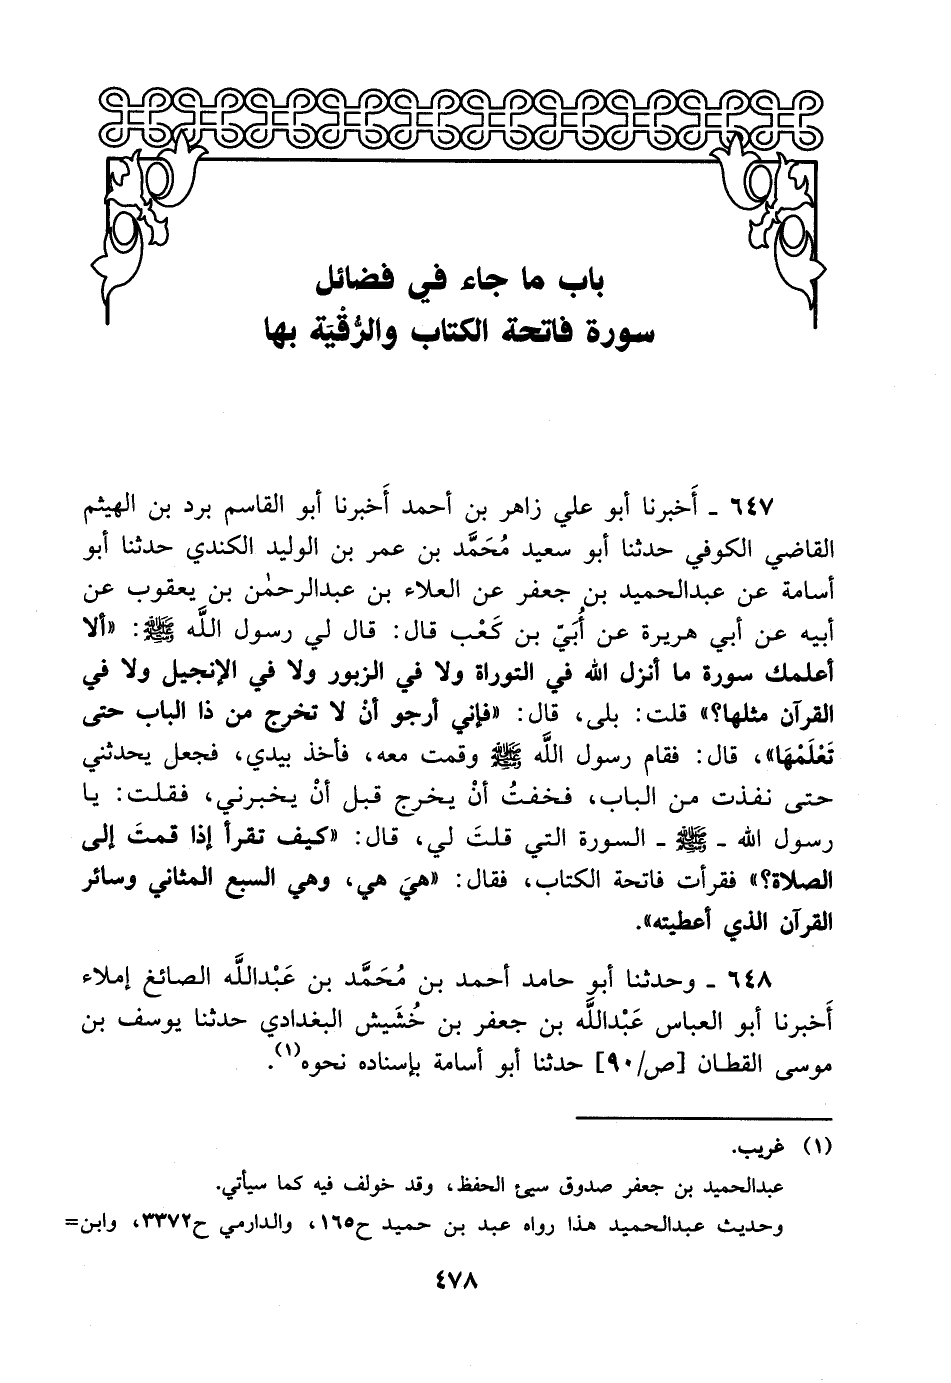 باب ما جاء في فضائل
سورة فاتحة الكتاب والرُّقْيَة بها
٦٤٧ ـ أَخبرنا أبو علي زاهر بن أحمد أَخبرنا أبو القاسم برد بن الهيثم
القاضي الكوفي حدثنا أبو سعيد مُحَمَّد بن عمر بن الوليد الكندي حدثنا أبو
أسامة عن عبدالحميد بن جعفر عن العلاء بن عبدالرحمٰن بن يعقوب عن
أبيه عن أبي هريرة عن أُبَيّ بن كَعْب قال: قال لي رسول اللَّه ﷺ: «ألا
أعلمك سورة ما أنزل الله في التوراة ولا في الزبور ولا في الإنجيل ولا في
القرآن مثلها؟» قلت: بلى، قال: «فإني أرجو أنْ لا تخرج من ذا الباب حتى
تَعْلَمْهَا»، قال: فقام رسول اللَّه ﷺ وقمت معه، فأخذ بيدي، فجعل يحدثني
حتى نفذت من الباب، فخفتُ أنْ يخرج قبل أنْ يخبرني، فقلت: يا
رسول الله ـ ﷺ ـ السورة التي قلتَ لي، قال: «كيف تقرأ إذا قمتَ إلى
الصلاة؟» فقرأت فاتحة الكتاب، فقال: «هيَ هي، وهي السبع المثاني وسائر
القرآن الذي أعطيته».
٦٤٨ ـ وحدثنا أبو حامد أحمد بن مُحَمَّد بن عَبْداللَّه الصائغ إملاء
أَخبرنا أبو العباس عَبْداللَّه بن جعفر بن خُشَيش البغدادي حدثنا يوسف بن
موسى القطان [ص/٩٠] حدثنا أبو أسامة بإسناده نحوه(١).
(١) غريب.
عبدالحميد بن جعفر صدوق سيئ الحفظ، وقد خولف فيه كما سيأتي.
وحديث عبدالحميد هذا رواه عبد بن حميد ح١٦٥، والدارمي ح٣٣٧٢، وابن=
٤٧٨